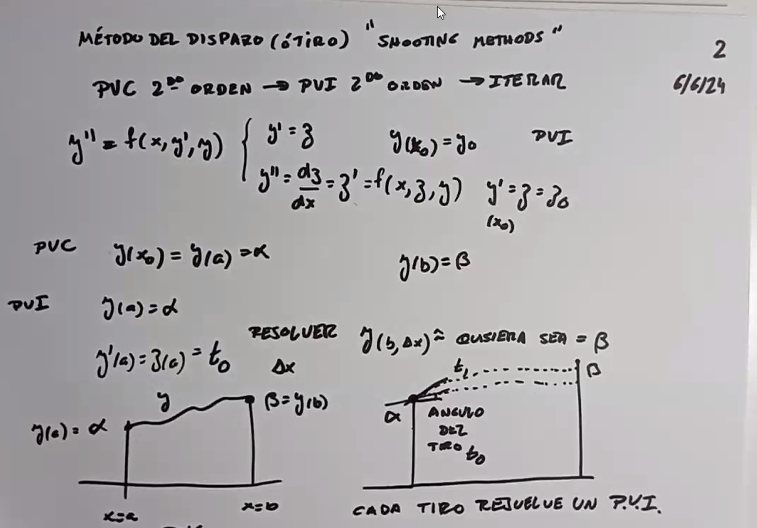 MÉTODO DEL DISPARO (ó TIRO) "SHOOTING METHODS"
2
6/6/24
PVC 2DO ORDEN → PVI 2DO ORDEN → ITERAR
y'' = f(x, y', y) { y' = z    y(x0) = y0    PVI
y'' = dz/dx = z' = f(x, z, y)    y'(x0) = z = z0
PVC    y(x0) = y(a) = α    y(b) = β
PVI    y(a) = α
y'(a) = z(a) = t0    RESOLVER Δx    y(b, Δx) ≈ QUSIERA SEA = β
y    β = y(b)
y(a) = α
x=a    x=b
t1    β
α    ANGULO
DEL
TIRO t0
CADA TIRO RESUELVE UN P.V.I.